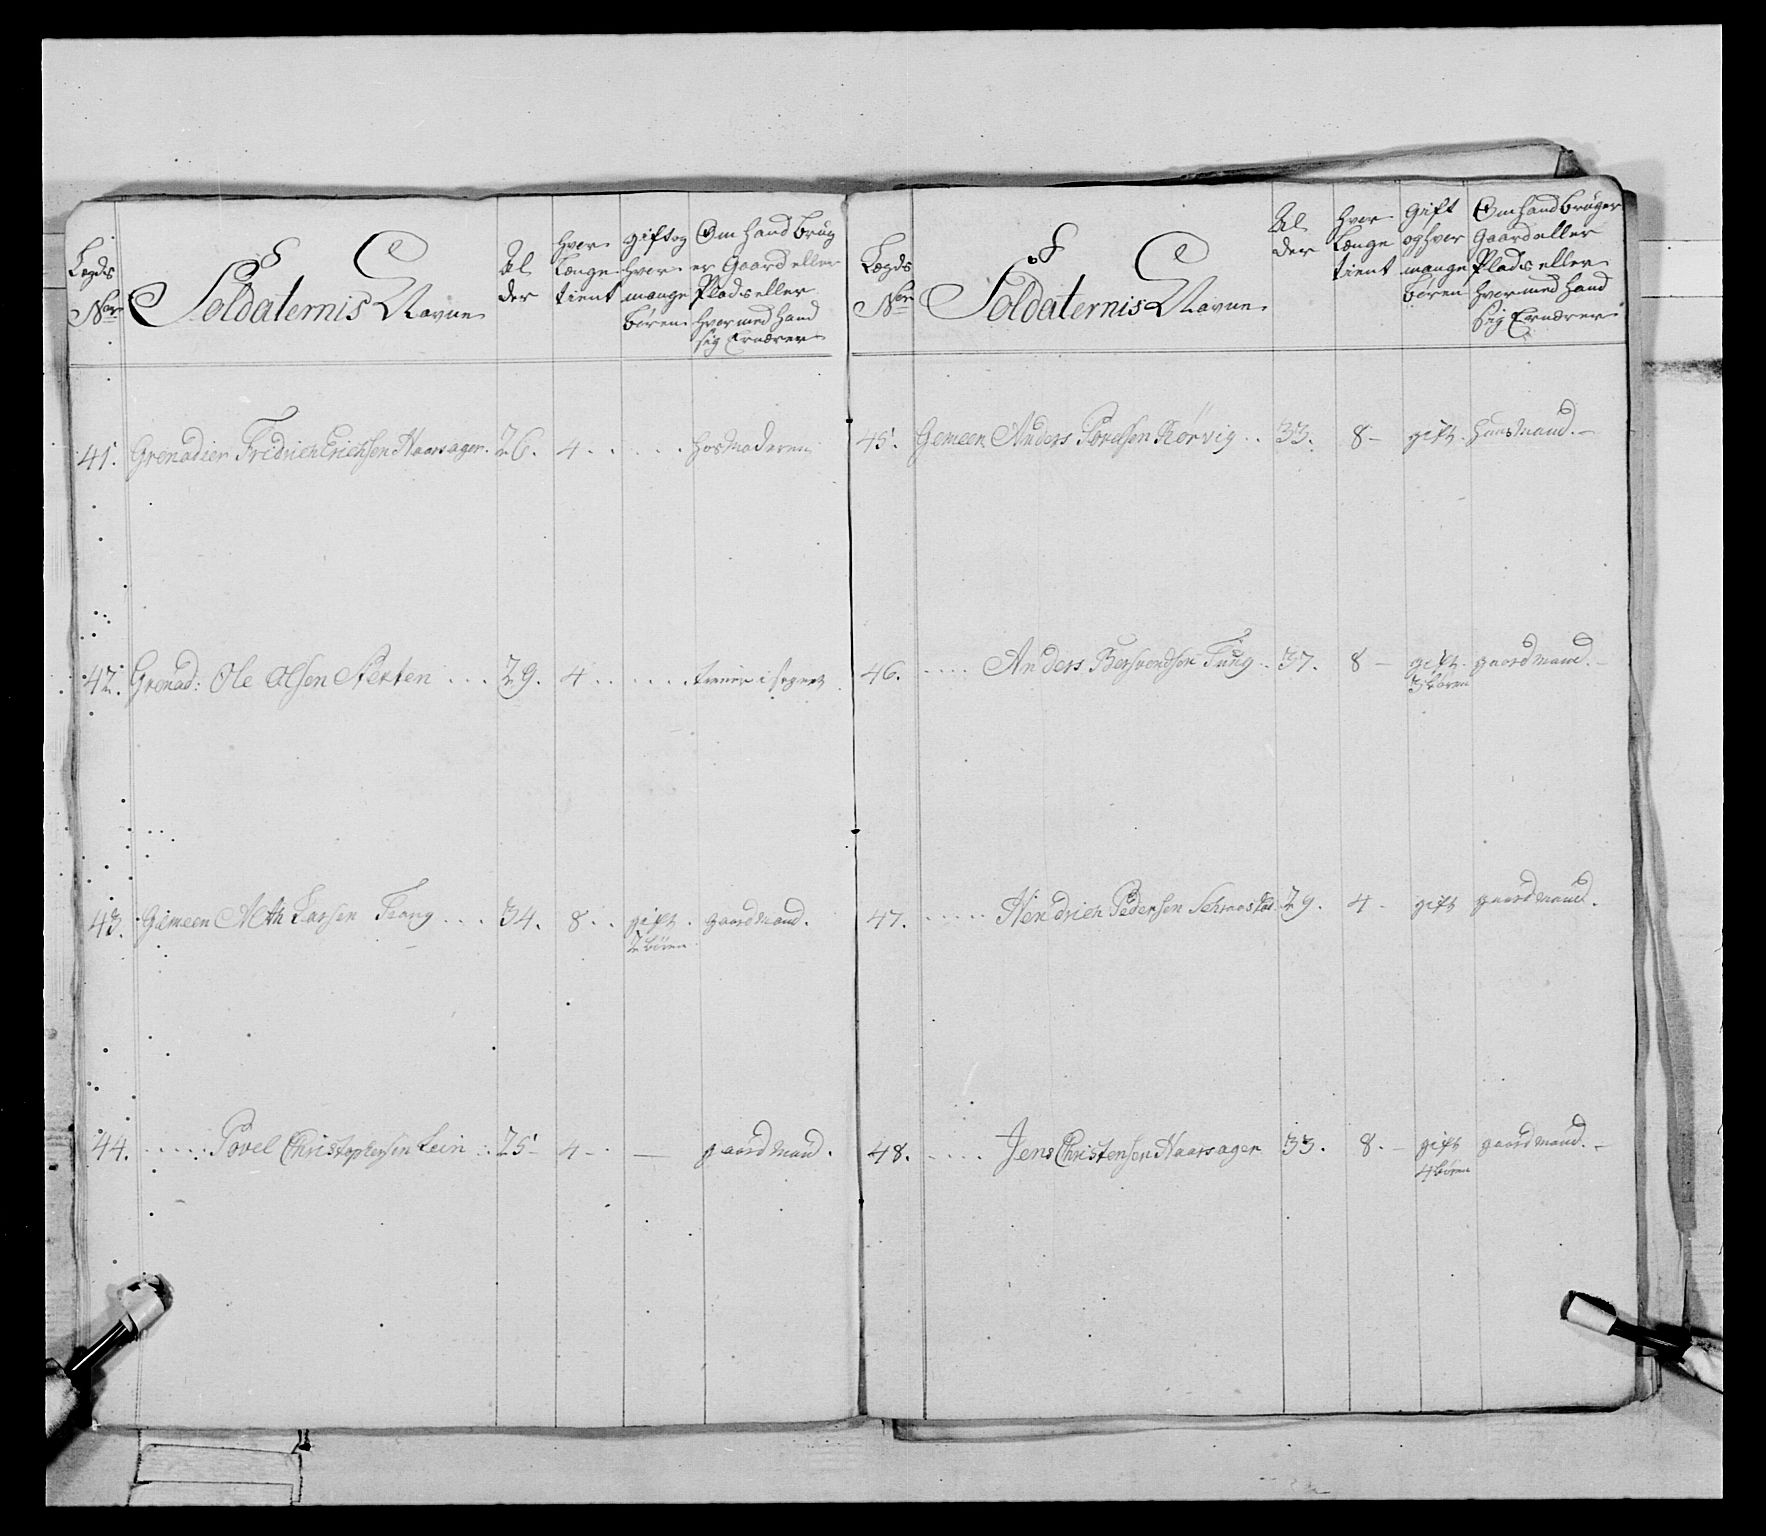 Legds
No
Soldaternis Navne
Al
der
hvor
Længe
tient
gift og
hvor
mange
børen
Om hand brug
er Gaard eller
Plads eller
hvormed hand
sig Ernærer
41. Grenadier Fridrich Erichsen Haarsager. 26. 4. hos Moderen
42. Grenad: Ole Olsen 29. 4. tiener i sognet
43. Gemeen Math Larsen 34. 8. gift. gaardmand.
2 børen
44. Povel Christophersen Lein 25 4 — gaardmand.
Legds
No
Soldaternis Navne
Al
der
hvor
Længe
tient
Gift
og hvor
mange
børen
Om hand bruger
Gaard eller
Plads eller
hvormed hand
sig Ernærer
45. Gemeen Anders Rørvig 33. 8 gift. huusmand.
46. Anders Bersvendsen 37. 8 gift. gaardmand.
3 børen
47. Hendrich Pedersen 29. 4 gift gaardmand.
48. Jens Christensen Haarsager 33. 8. gift gaardmand.
4 børen